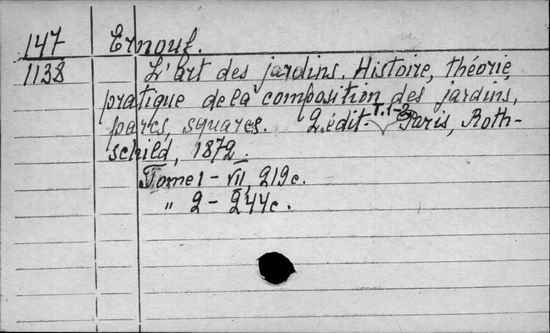 147 Ernouf.
1138 L'Art des jardins. Histoire, théorie,
pratique de la composition des jardins,
parcs, squares. 2 édit. T.1-2 Paris, Roth-
schild, 1872.
Tome 1 - VII, 219c.
" 2 - 244c.